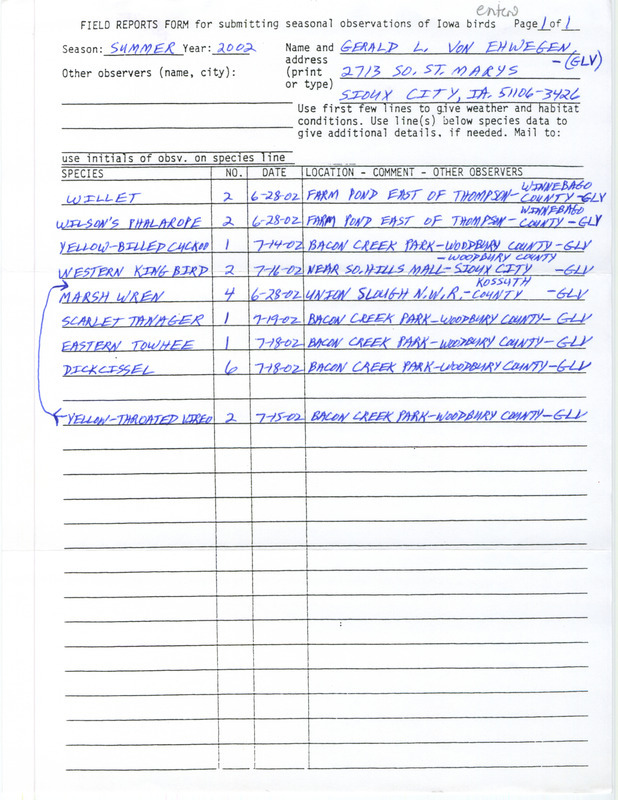 enter
FIELD REPORTS FORM for submitting seasonal observations of Iowa birds Page 1 of 1
Season: SUMMER Year: 2002 Name and GERALD L. VON EHWEGEN
address -(GLV)
Other observers (name, city): (print 2713 SO. ST. MARYS
or type) SIOUX CITY, IA. 51106-3426
Use first few lines to give weather and habitat
conditions. Use line(s) below species data to
give additional details, if needed. Mail to:
use initials of obsv. on species line
SPECIES NO. DATE LOCATION - COMMENT - OTHER OBSERVERS
WILLET 2 6-28-02 FARM POND EAST OF THOMPSON- WINNEBAGO COUNTY -GLV
WILSON'S PHALAROPE 2 6-28-02 FARM POND EAST OF THOMPSON- WINNEBAGO COUNTY -GLV
YELLOW-BILLED CUCKOO 1 7-14-02 BACON CREEK PARK-WOODBURY COUNTY-GLV
WESTERN KING BIRD 2 7-16-02 NEAR SO. HILLS MALL-SIOUX CITY -WOODBURY COUNTY -GLV
MARSH WREN 4 6-28-02 UNION SLOUGH N.W.R.- KOSSUTH COUNTY -GLV
SCARLET TANAGER 1 7-19-02 BACON CREEK PARK-WOODBURY COUNTY-GLV
EASTERN TOWHEE 1 7-18-02 BACON CREEK PARK-WOODBURY COUNTY-GLV
DICKCISSEL 6 7-18-02 BACON CREEK PARK-WOODBURY COUNTY-GLV
YELLOW-THROATED VIREO 2 7-15-02 BACON CREEK PARK-WOODBURY COUNTY-GLV